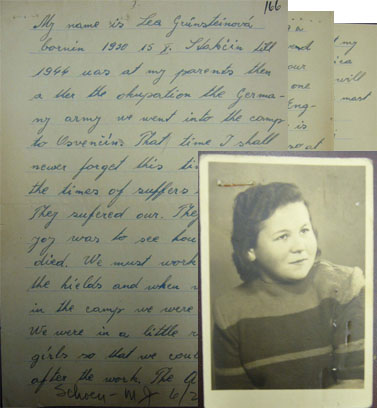 166
My name is Lea Grünsteinová
bornin 1930 15 X. Stakčin till
1944 was at my parents then
a ther the okupation the Germa-
ny army we went into the camp
to Osvenčíns That, time I shall
newer forget this ti
the times of suffers
They sufered our. The
joy was to see hou
died. We must work
the hields and when
in the camp we were
We were in a little r
girls so that we cou
after the work. The
Schoen - M J 6/2
a
and
our
one
Eng-
is
so at
my
a
will
most